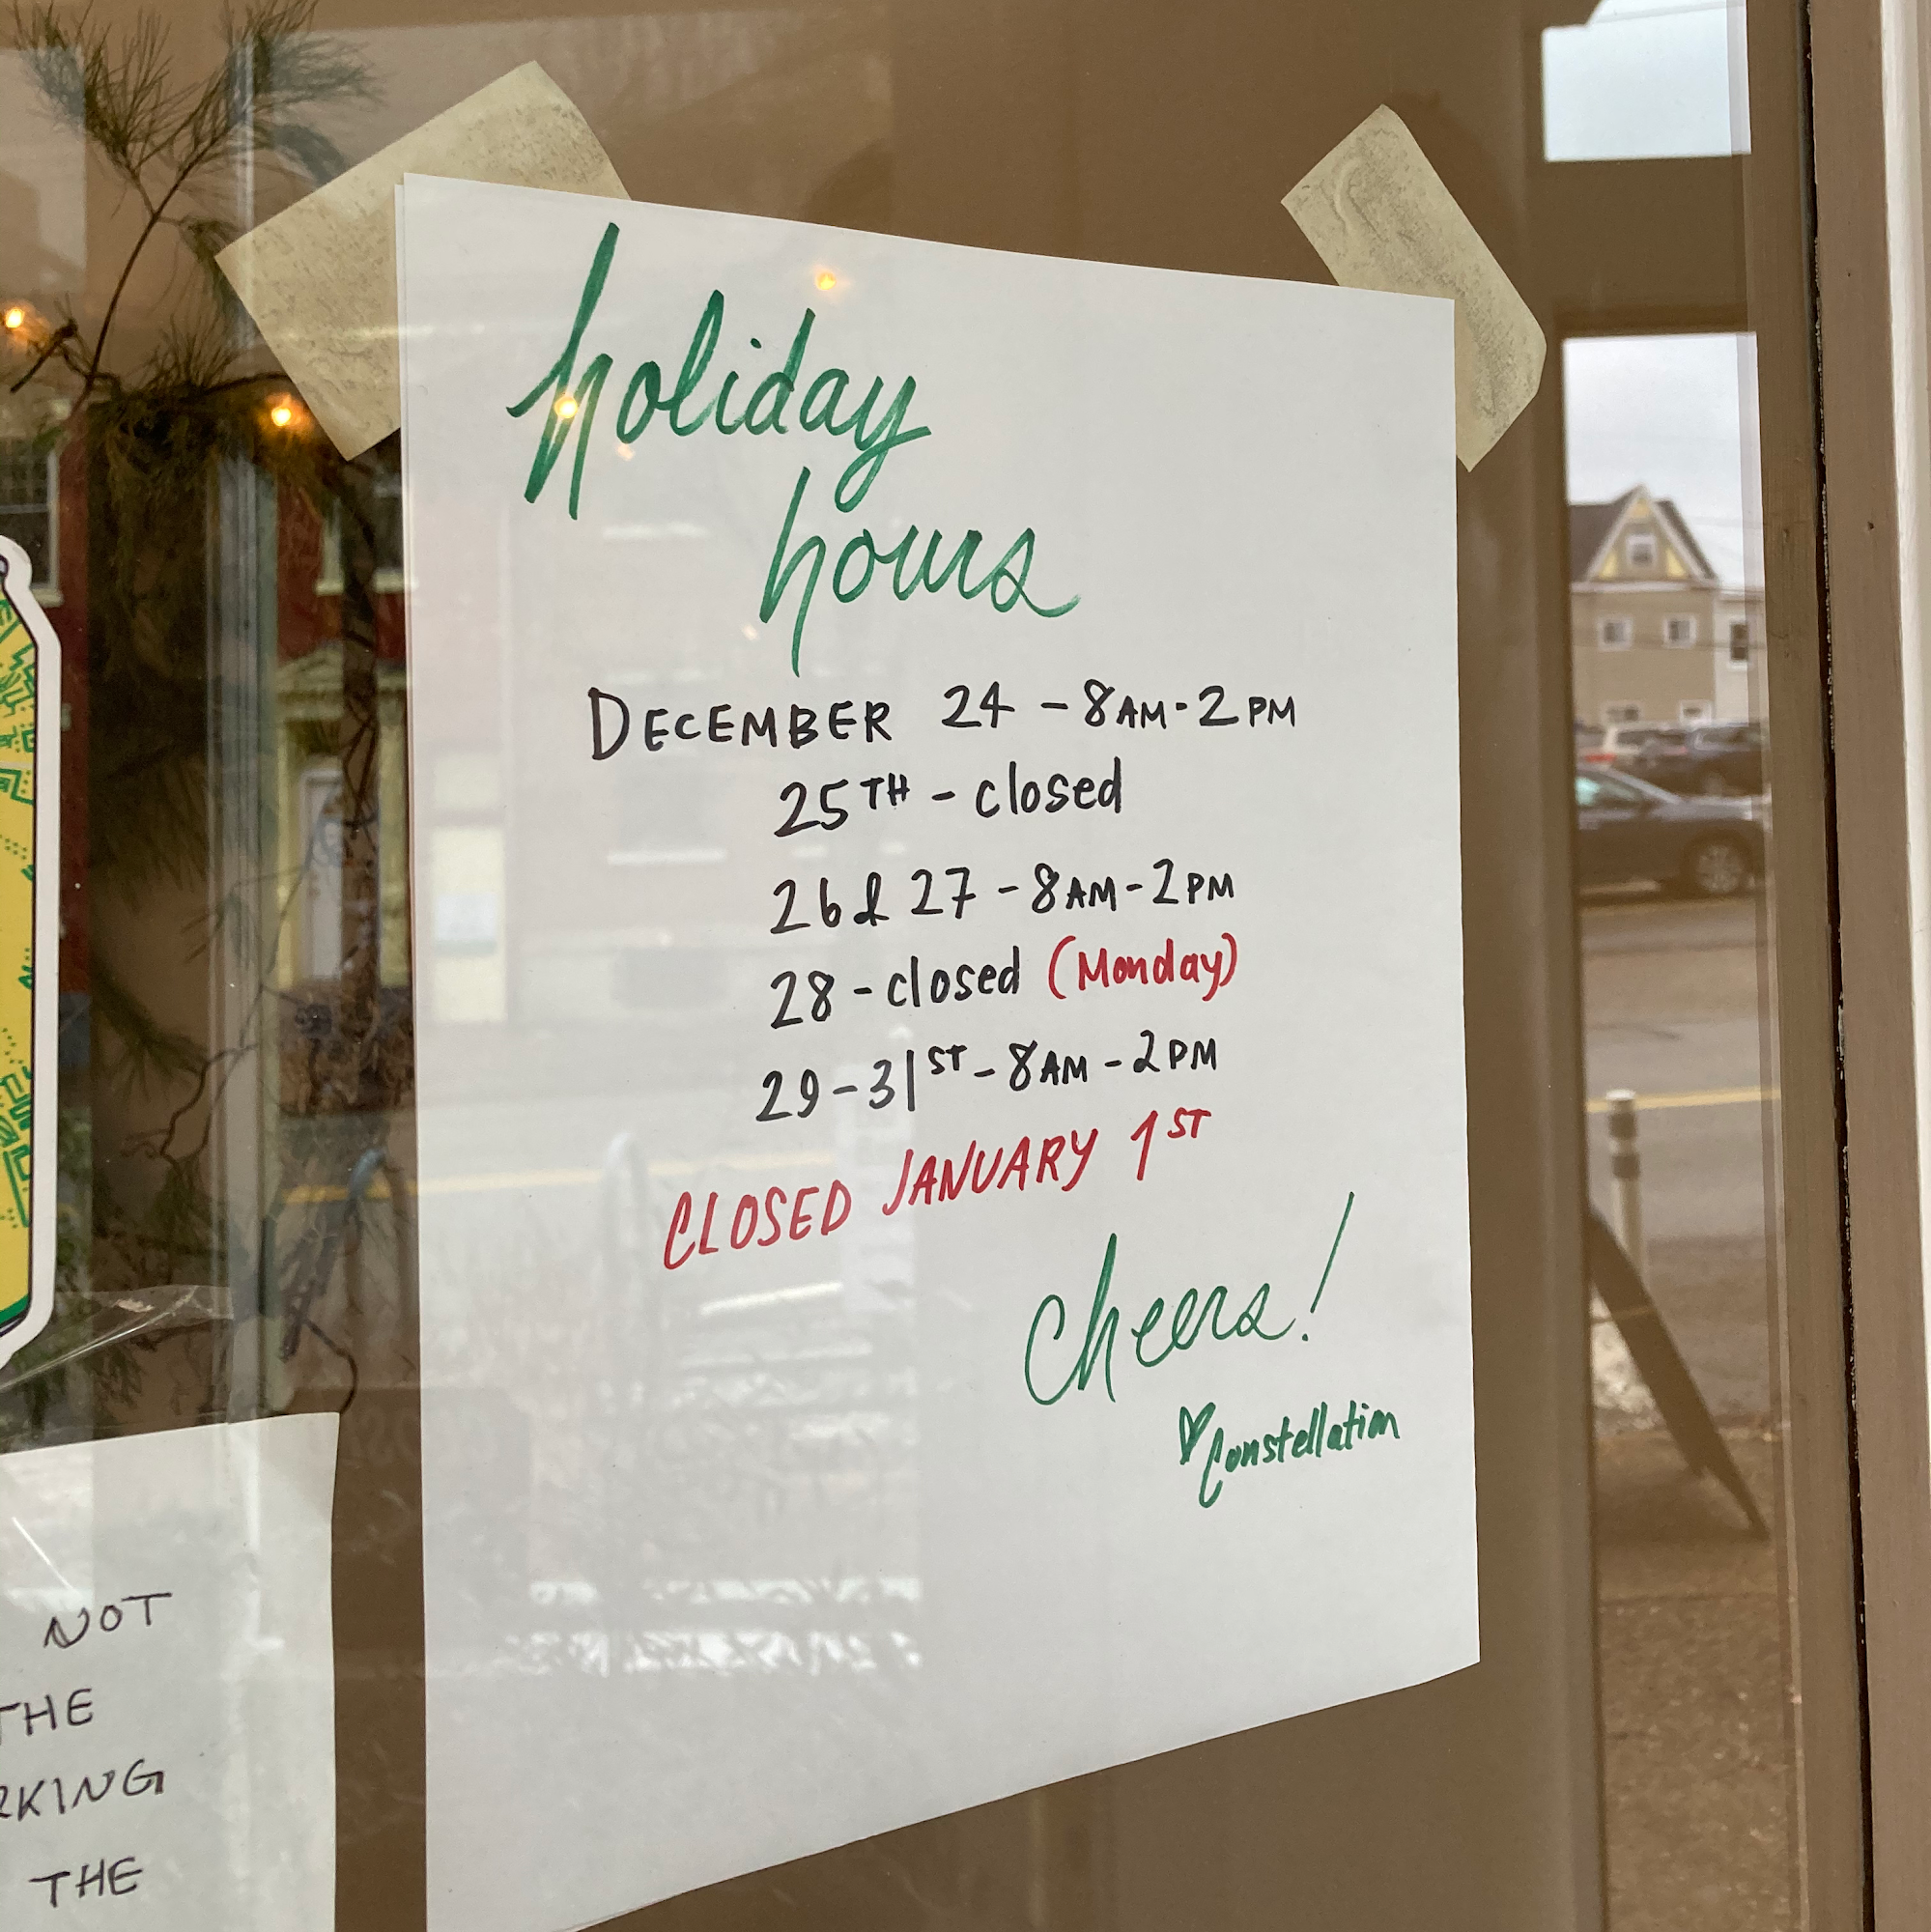 holiday
hours
DECEMBER 24 - 8AM - 2PM
25TH - closed
26 & 27 - 8AM - 2PM
28 - closed (Monday)
29 - 31ST - 8AM - 2PM
CLOSED JANUARY 1ST
cheers!
♡ Constellation
NOT
THE
RKING
THE